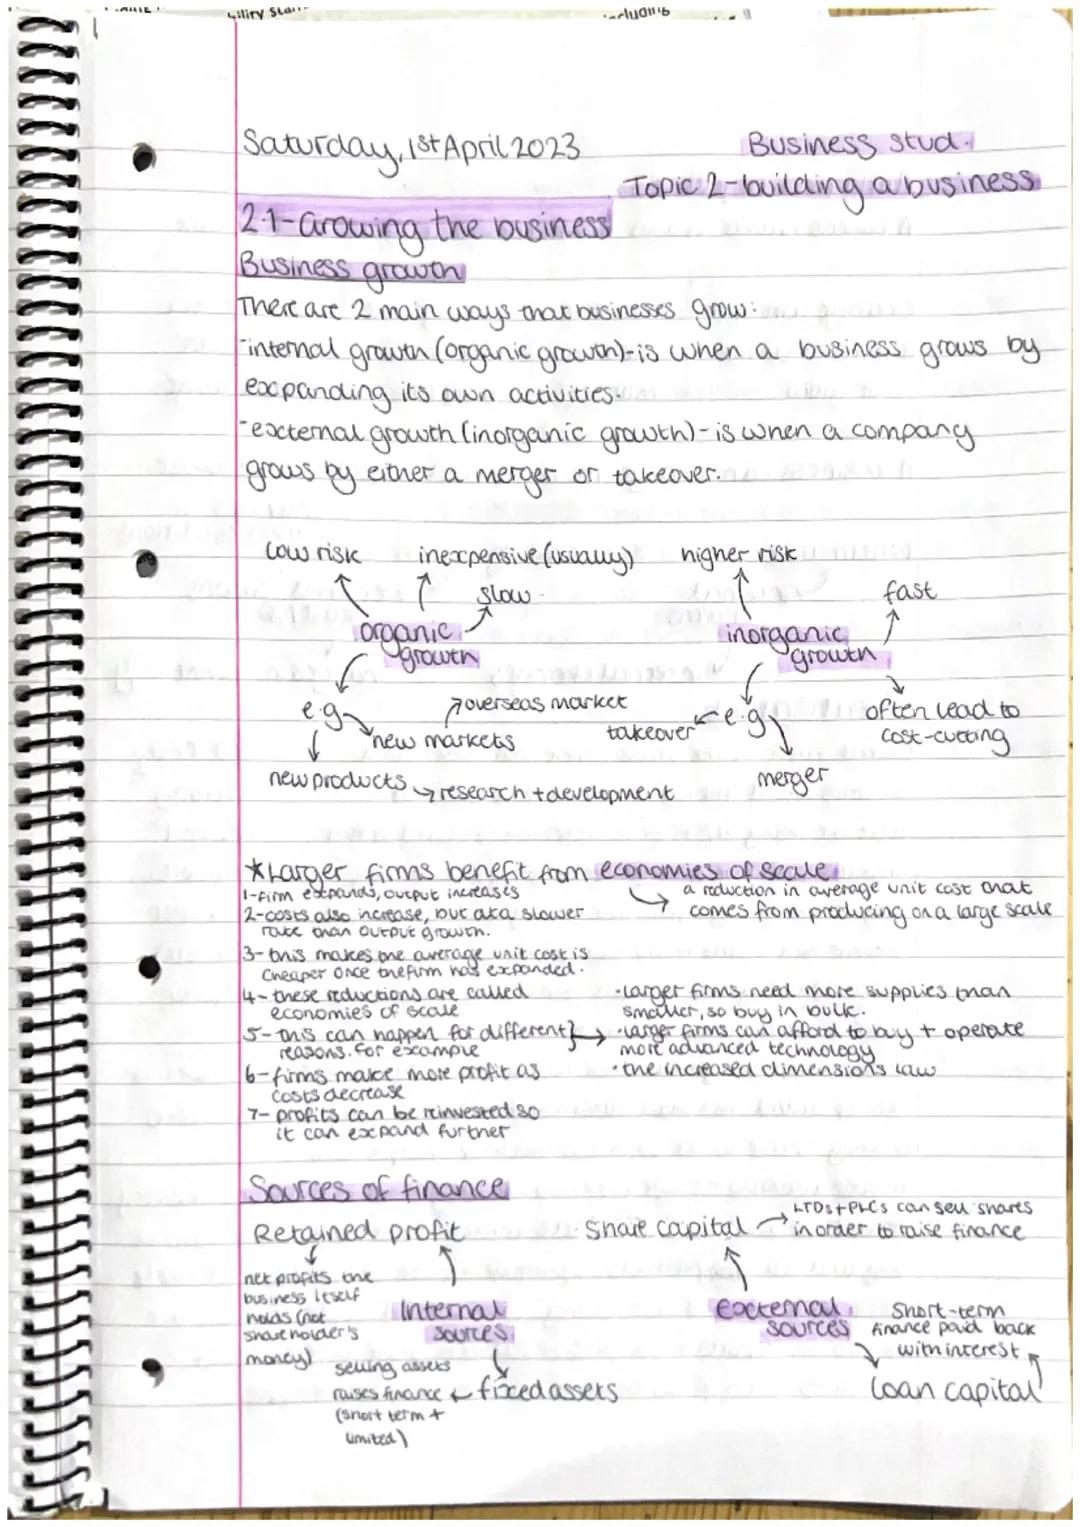 bility
including
Saturday, 1st April 2023
Business stud.
Topic 2-building a business
2.1-Growing the business
Business growth
There are 2 main ways that businesses grow:
-internal growth (organic growth)-is when a business grows by
expanding its own activities.
-external growth (inorganic growth)-is when a company
grows by either a merger or takeover.
low risk
inexpensive (usually)
slow
organic
growth
e.g
new markets
overseas market
new products
research + development
higher risk
fast
inorganic
growth
e.g
takeover
merger
often lead to
cost-cutting
*Larger firms benefit from economies of scale
a reduction in average unit cost that
comes from producing on a large scale
1-firm expands, output increases
2-costs also increase, but at a slower
rate than output growth.
3-this makes the average unit cost is
cheaper once the firm has expanded.
4-these reductions are called
economies of scale
5-this can happen for different
reasons. For example
•Larger firms need more supplies than
smaller, so buy in bulk.
•larger firms can afford to buy + operate
more advanced technology
•the increased dimensions law
6-firms make more profit as
costs decrease
7-profits can be reinvested so
it can expand further
Sources of finance
Retained profit
net profits the
business itself
holds (not
shareholder's
money)
Internal
sources
fixed assets
selling assets
raises finance
(short term +
limited)
Share capital
LTDs + PLCs can sell shares
in order to raise finance
External
sources
Short-term
finance paid back
with interest
Loan capital